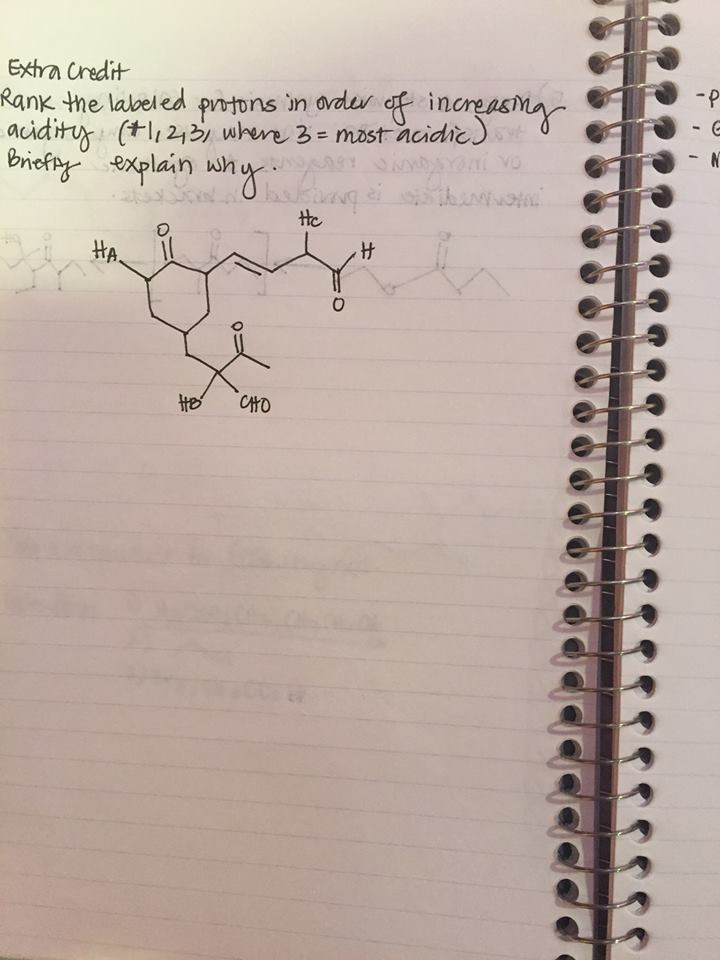 Extra Credit
Rank the labeled protons in order of increasing
acidity (#1,2,3, where 3 = most acidic)
Briefly explain why.
HA
O
Hc
H
O
O
HB
CHO
-P
- G
- N